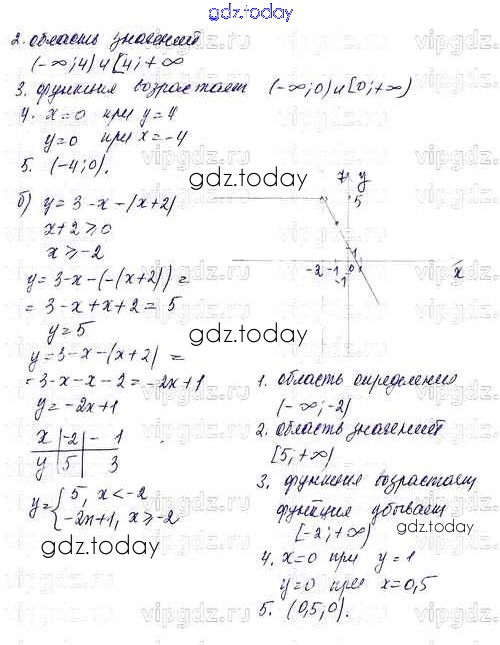 gdz.today
2. область значений
(-∞;4) и [4;+∞
3. функция возрастает (-∞;0) и [0;+∞)
4. x=0 при y=4
y=0 при x=-4
5. (-4;0).
gdz.today
б) y=3-x-|x+2|
x+2≥0
x≥-2
y=3-x-(-(x+2))=
=3-x+x+2=5
y=5
gdz.today
y=3-x-(x+2)=
=3-x-x-2=-2x+1
y=-2x+1
x | -2 | -1
y | 5 | 3
y={5, x<-2
-2x+1, x≥-2
gdz.today
y
5
1
-2 -1 0 x
-1
1. область определения
(-∞;-2)
2. область значений
[5;+∞)
3. функция возрастает,
функция убывает
[-2;+∞)
gdz.today
4. x=0 при y=1
y=0 при x=0,5
5. (0,5;0).
gdz.today